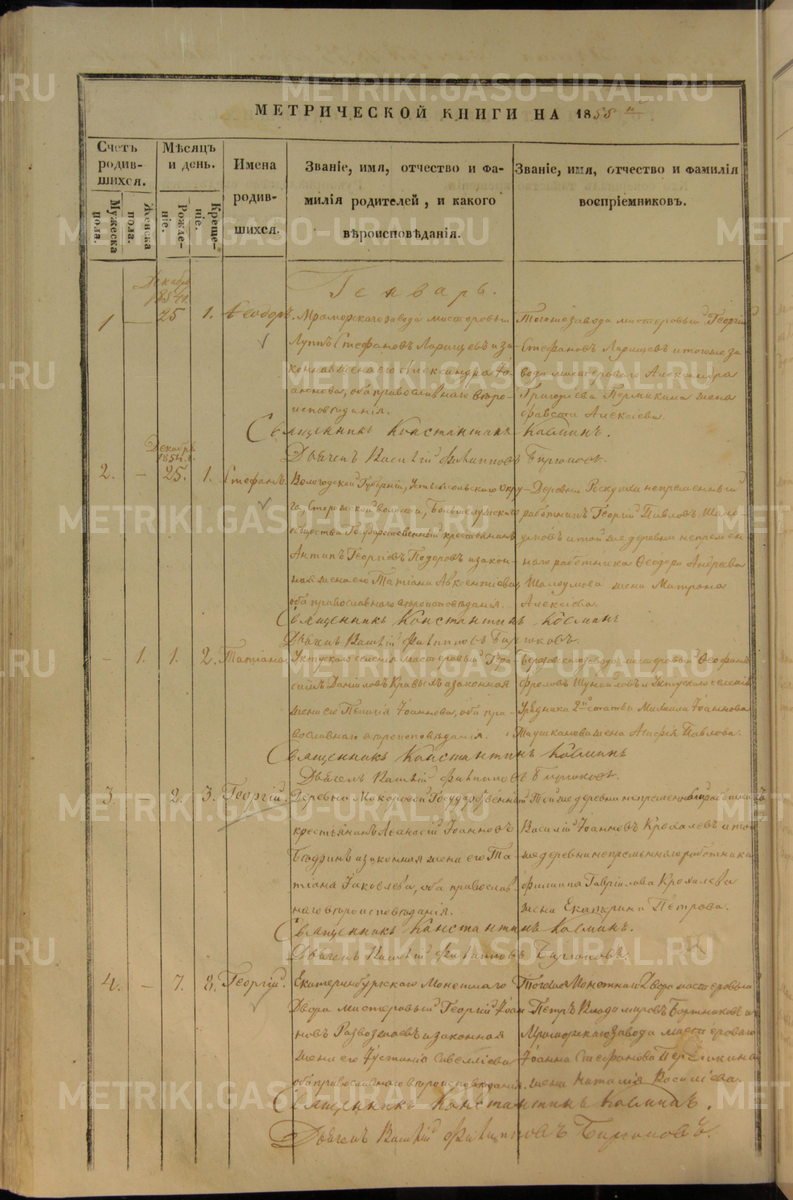 МЕТРИЧЕСКОЙ КНИГИ НА 1855
Счетъ родив-шихся.
Мужеска пола.
Женска пола.
Мѣсяцъ и день.
Рожде-ніе.
Креще-ніе.
Имена родив-шихся.
Званіе, имя, отчество и фа-
милія родителей, и какого
вѣроисповѣданія.
Званіе, имя, отчество и фамилія
воспріемниковъ.
Генварь.
Декабр
1854
1 — 25 1. Ѳеодоръ.
Мраморскаго завода мастеровый
Луппъ Стефановъ Ларищевъ и за-
конная жена его Александра Іо-
аннова, оба православнаго вѣро-
исповѣданія.
Тогоже завода мастеровый Георгій
Стефановъ Ларищевъ и тогоже за
вода мастероваго Александра
Григорьева Пермикина жена
Алексіева.
Священникъ Константинъ Космин.
Дьячекъ Василій Филипповъ Бирюковъ.
Декабр
1854
2. — 25. 1. Стефанъ.
Вологодской Губерніи, Устьсысольскаго Окру-
га, волости,
общества Государственный крестьянинъ
Антипъ Георгіевъ Подоровъ и закон-
ная жена его Татіана Авксентіева,
оба православнаго вѣроисповѣданія.
Деревни непременный
работникъ Георгій Павловъ
и той же деревни непремен
наго работника Ѳеодора Андреева
жена Матрона
Алексіева.
Священникъ Константинъ Косминъ
Дьячекъ Василій Филипповъ Бирюковъ.
— 1. 1. 2. Татіана
Уктускаго селенія мастеровый
Даніиловъ и законная
жена его Пелагія Іоаннова, оба пра-
вославнаго вѣроисповѣданія.
мастеровый
Фроловъ и Уктускаго селенія
Урядника 2й статьи Михаила Іоаннова
жена Павлова.
Священникъ Константинъ Косминъ
Дьячекъ Василій Филипповъ Бирюковъ.
3. — 2. 3. Георгій.
Деревни Государственный
крестьянинъ Аѳанасій Іоанновъ
и законная жена его Та-
тіана Іаковлева, оба православ-
наго вѣроисповѣданія.
Той же деревни непременный работникъ
Василій Іоанновъ Крохалевъ и той
же деревни непременнаго работника
Филиппа Гавріилова Крохалева
жена Екатерина Петрова.
Священникъ Константинъ Косминъ.
Дьячекъ Василій Филипповъ Бирюковъ.
4. — 7. 8. Георгій.
Екатеринбургскаго Монетнаго
Двора мастеровый Георгій Іоан-
новъ и законная
жена его Іустинія Савелліева
оба православнаго вѣроисповѣданія.
Тогоже Монетнаго Двора мастеровый
Петръ Владиміровъ Бортниковъ и
Мраморскаго завода мастероваго
Іоанна Стефанова Пермикина
жена Наталія Василіева.
Священникъ Константинъ Косминъ.
Дьячекъ Василій Филипповъ Бирюковъ.
METRIKI.GASO-URAL.RU